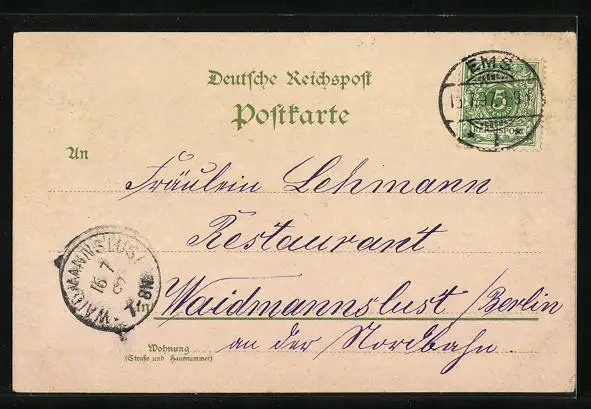 Deutsche Reichspost
Postkarte
EMS
5
An
Fräulein Lehmann
Restaurant
in Waidmannslust / Berlin
an der Nordbahn.
Wohnung
(Straße und Hausnummer)
WAIDMANNSLUST
16 7